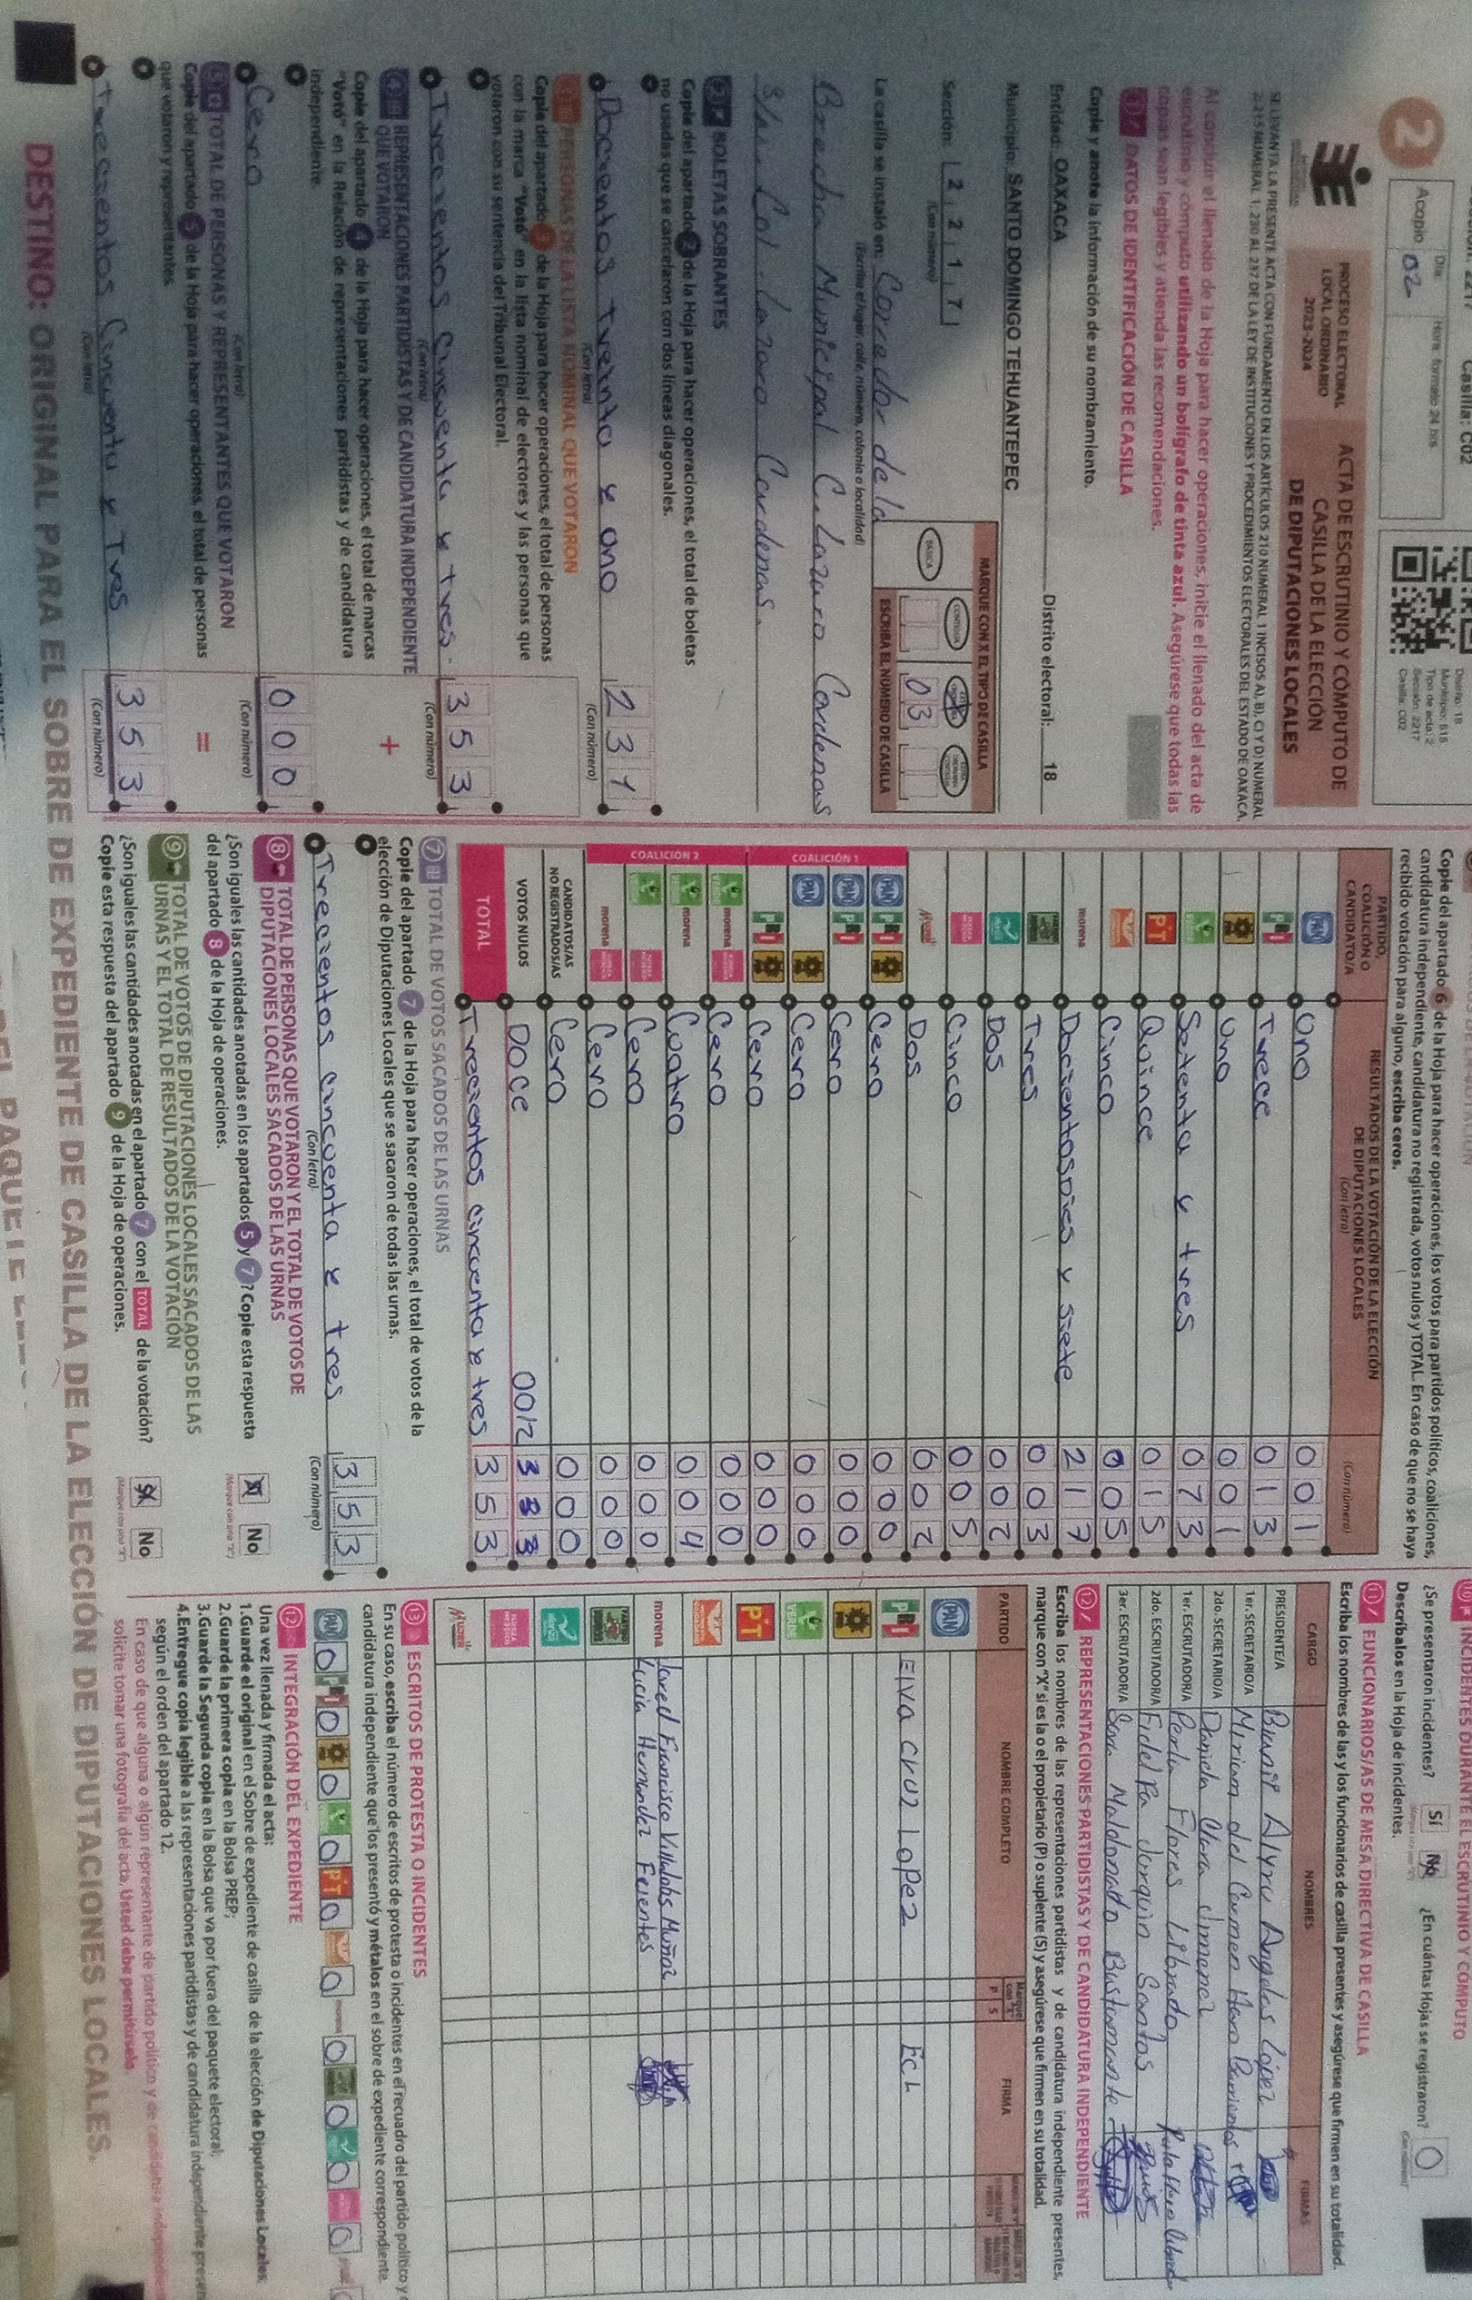 Casilla: C02
2
Acopio
Día:
Hora: formato 24 hrs
02
Distrito: 18
Municipio: 515
Tipo de acta: 2
Sección: 2217
Casilla: C02
PROCESO ELECTORAL
LOCAL ORDINARIO
2023-2024
ACTA DE ESCRUTINIO Y CÓMPUTO DE
CASILLA DE LA ELECCIÓN
DE DIPUTACIONES LOCALES
SE LEVANTA LA PRESENTE ACTA CON FUNDAMENTO EN LOS ARTÍCULOS 210 NUMERAL 1 INCISOS A), B), C) Y D) NUMERAL
2; 215 NUMERAL 1; 230 AL 237 DE LA LEY DE INSTITUCIONES Y PROCEDIMIENTOS ELECTORALES DEL ESTADO DE OAXACA.
Al concluir el llenado de la Hoja para hacer operaciones, inicie el llenado del acta de
escrutinio y cómputo utilizando un bolígrafo de tinta azul. Asegúrese que todas las
copias sean legibles y atienda las recomendaciones.
1 DATOS DE IDENTIFICACIÓN DE CASILLA
Copie y anote la información de su nombramiento.
Entidad: OAXACA Distrito electoral: 18
Municipio: SANTO DOMINGO TEHUANTEPEC
Sección: 2 2 1 7
(Con número)
MARQUE CON X EL TIPO DE CASILLA
BÁSICA
CONTIGUA
ESCRIBA EL NÚMERO DE CASILLA
03
La casilla se instaló en: Corredor de la
(Escriba el lugar, calle, número, colonia o localidad)
Brecha Municipal C. Lazaro Cardenas
S/n. Col. Lazaro Cardenas.
2 BOLETAS SOBRANTES
Copie del apartado 2 de la Hoja para hacer operaciones, el total de boletas
no usadas que se cancelaron con dos líneas diagonales.
Docientos treinta y uno
(Con letra)
231
(Con número)
3 PERSONAS DE LA LISTA NOMINAL QUE VOTARON
Copie del apartado 3 de la Hoja para hacer operaciones, el total de personas
con la marca "Votó" en la lista nominal de electores y las personas que
votaron con su sentencia del Tribunal Electoral.
Trecientos cincuenta y tres
(Con letra)
353
(Con número)
4 REPRESENTACIONES PARTIDISTAS Y DE CANDIDATURA INDEPENDIENTE
QUE VOTARON
Copie del apartado 4 de la Hoja para hacer operaciones, el total de marcas
"Votó" en la Relación de representaciones partidistas y de candidatura
independiente.
+
Cero
(Con letra)
000
(Con número)
5 TOTAL DE PERSONAS Y REPRESENTANTES QUE VOTARON
Copie del apartado 5 de la Hoja para hacer operaciones, el total de personas
que votaron y representantes.
=
Trecientos Cincuenta y Tres
(Con letra)
353
(Con número)
Copie del apartado 6 de la Hoja para hacer operaciones, los votos para partidos políticos, coaliciones,
candidatura independiente, candidatura no registrada, votos nulos y TOTAL. En caso de que no se haya
recibido votación para alguno, escriba ceros.
PARTIDO,
COALICIÓN O
CANDIDATO/A
RESULTADOS DE LA VOTACIÓN DE LA ELECCIÓN
DE DIPUTACIONES LOCALES
(Con letra)
(Con número)
PAN Uno 001
PRI Trece 013
Uno 001
VERDE Setenta y tres 073
PT Quince 015
Cinco 005
morena Docientos Dies y siete 217
Tres 003
Dos 002
Cinco 005
MUJER Dos 002
COALICIÓN 1
PAN PRI Cero 000
PAN PRI Cero 000
PAN Cero 000
PRI Cero 000
COALICIÓN 2
morena Cero 000
morena Cuatro 004
Cero 000
morena Cero 000
CANDIDATOS/AS
NO REGISTRADOS/AS Cero 000
VOTOS NULOS Doce 0012 333
TOTAL Trecientos cincuenta y tres 353
7 TOTAL DE VOTOS SACADOS DE LAS URNAS
Copie del apartado 7 de la Hoja para hacer operaciones, el total de votos de la
elección de Diputaciones Locales que se sacaron de todas las urnas.
Trecientos cincuenta y tres
(Con letra)
353
(Con número)
8 TOTAL DE PERSONAS QUE VOTARON Y EL TOTAL DE VOTOS DE
DIPUTACIONES LOCALES SACADOS DE LAS URNAS
¿Son iguales las cantidades anotadas en los apartados 5 y 7? Copie esta respuesta
del apartado 8 de la Hoja de operaciones.
No
9 TOTAL DE VOTOS DE DIPUTACIONES LOCALES SACADOS DE LAS
URNAS Y EL TOTAL DE RESULTADOS DE LA VOTACIÓN
¿Son iguales las cantidades anotadas en el apartado 7 con el TOTAL de la votación?
Copie esta respuesta del apartado 9 de la Hoja de operaciones.
Sí No
10 INCIDENTES DURANTE EL ESCRUTINIO Y CÓMPUTO
¿Se presentaron incidentes? Sí No ¿En cuántas Hojas se registraron? 0
Descríbalos en la Hoja de incidentes.
11 FUNCIONARIOS/AS DE MESA DIRECTIVA DE CASILLA
Escriba los nombres de las y los funcionarios de casilla presentes y asegúrese que firmen en su totalidad.
CARGO NOMBRES FIRMAS
PRESIDENTE/A Angeles López
1er. SECRETARIO/A Miriam del Carmen
2do. SECRETARIO/A Daniela Clara Jimenez
1er. ESCRUTADOR/A Perla Flores Librado
2do. ESCRUTADOR/A Fidel Joaquin Santos
3er. ESCRUTADOR/A Maldonado Bustamante
12 REPRESENTACIONES PARTIDISTAS Y DE CANDIDATURA INDEPENDIENTE
Escriba los nombres de las representaciones partidistas y de candidatura independiente presentes,
marque con "X" si es la o el propietario (P) o suplente (S) y asegúrese que firmen en su totalidad.
PARTIDO NOMBRE COMPLETO P S FIRMA
PAN
PRI Elva Cruz Lopez ECL
VERDE
PT
morena Jared Francisco Villalobs Muñoz
Lucia Hernandez Feientes
MUJER
13 ESCRITOS DE PROTESTA O INCIDENTES
En su caso, escriba el número de escritos de protesta o incidentes en el recuadro del partido político y
candidatura independiente que los presentó y métalos en el sobre de expediente correspondiente.
PAN 0 PRI 0 0 0 PT 0 0 0 0 0 0
12 INTEGRACIÓN DEL EXPEDIENTE
Una vez llenada y firmada el acta:
1.Guarde el original en el Sobre de expediente de casilla de la elección de Diputaciones Locales;
2.Guarde la primera copia en la Bolsa PREP;
3.Guarde la Segunda copia en la Bolsa que va por fuera del paquete electoral;
4.Entregue copia legible a las representaciones partidistas y de candidatura independiente
según el orden del apartado 12.
En caso de que alguna o algún representante de partido político y de candidatura independiente
solicite tomar una fotografía del acta, Usted debe permitírselo.
DESTINO: ORIGINAL PARA EL SOBRE DE EXPEDIENTE DE CASILLA DE LA ELECCIÓN DE DIPUTACIONES LOCALES.